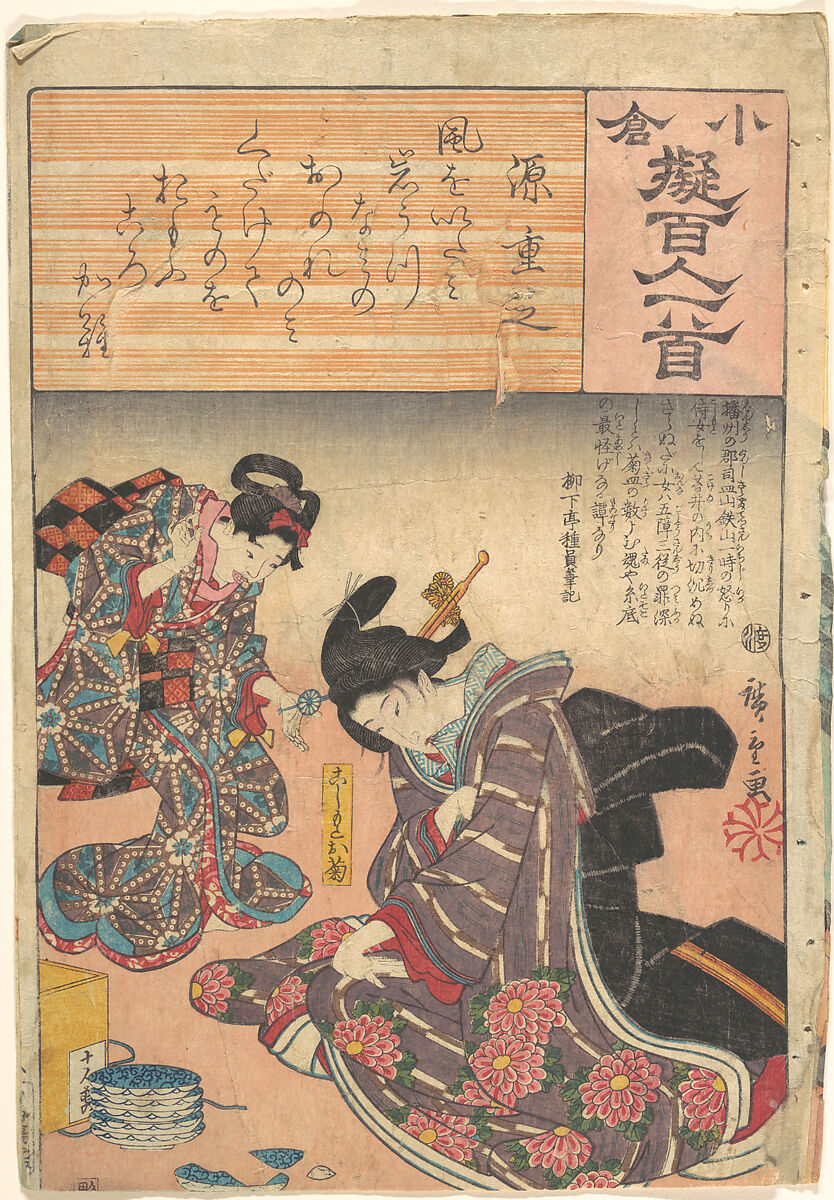 小倉
擬百人一首
源重之
風をいたミ
岩うつ
なミの
おのれ
のミ
くだけて
ものを
おもふ
ころ
かな
播州の郡司皿山鉄山一時の怒りに
侍女をして古井の内に切沈めぬ
さらぬだに女ハ五障三従の罪深
しとハ菊皿の数よむ魂や糸底
の最怪げなる譚なり
柳下亭種員筆記
渡
廣重画
こしもとお菊
十人前